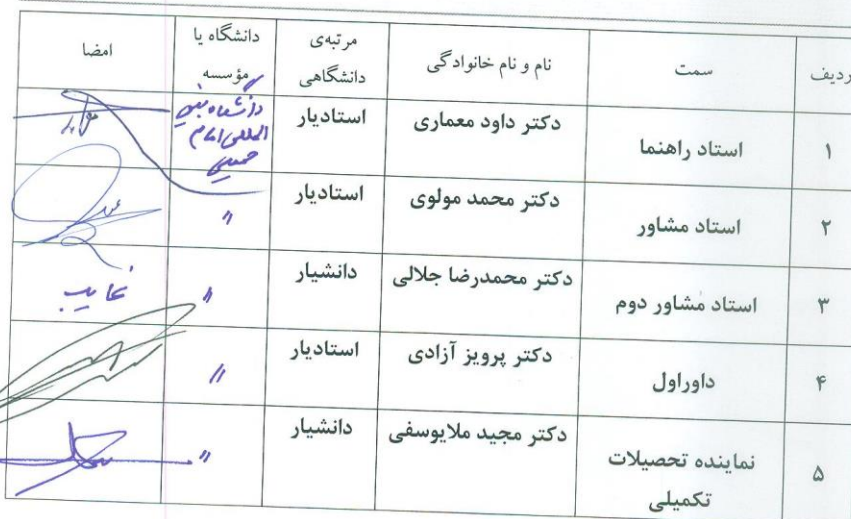 ردیف سمت نام و نام خانوادگی مرتبه‌ی دانشگاهی دانشگاه یا مؤسسه امضا
۱ استاد راهنما دکتر داود معماری استادیار دانشگاه بین المللی امام خمینی
۲ استاد مشاور دکتر محمد مولوی استادیار "
۳ استاد مشاور دوم دکتر محمدرضا جلالی دانشیار " غایب
۴ داوراول دکتر پرویز آزادی استادیار "
۵ نماینده تحصیلات تکمیلی دکتر مجید ملایوسفی دانشیار "